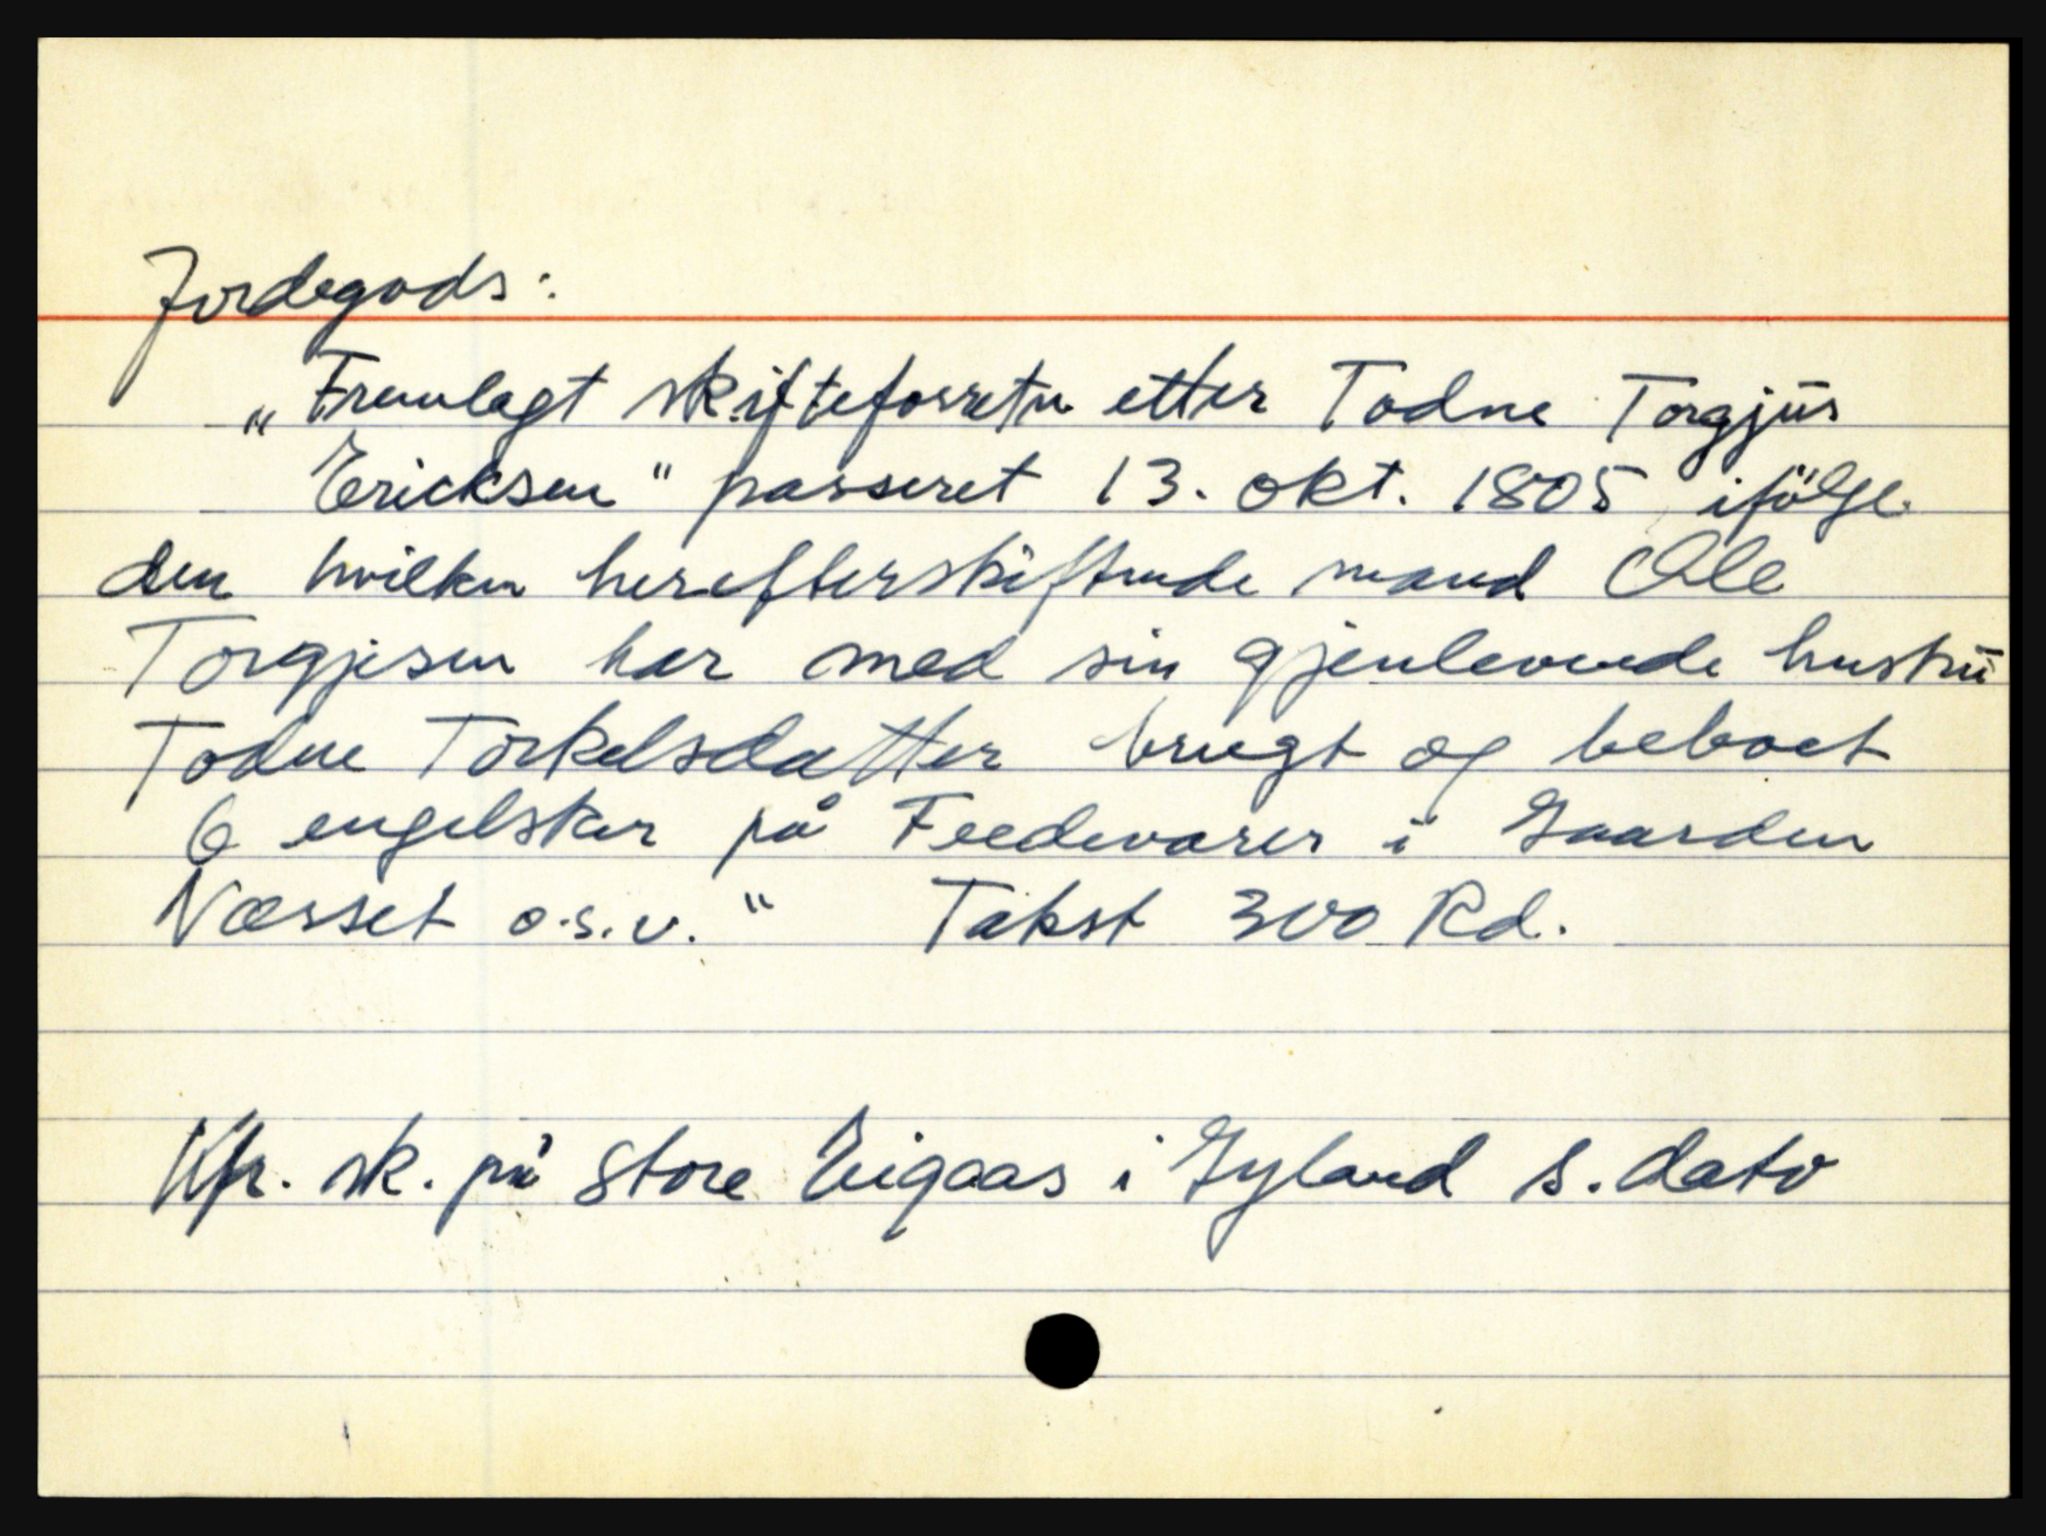 Jordegods:
„Fremlagt skifteforretn etter Todne Torgjüs
Ericksen" passeret 13. okt. 1805 ifölge
den hvilken herefterskiftende mand Ole
Torgjesen har med sin gjenlevende hustrü
Todne Torkelsdatter brugt og beboet
6 engelsker på Feedevarer i Gaarden
Næsset o.s.v." Takst 300 Rd.
Kfr. sk. på Store Eigaas i Gyland s. dato